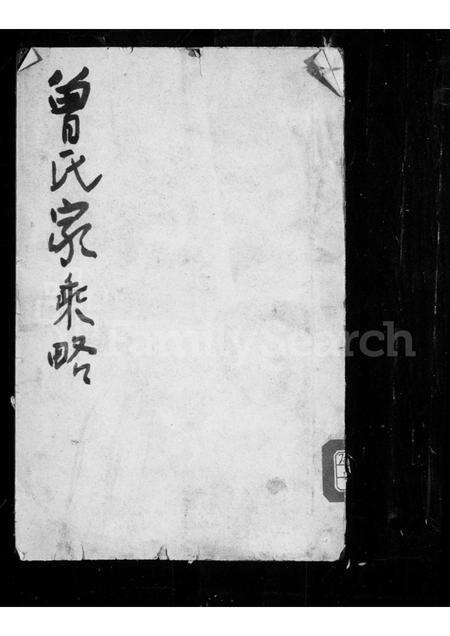 曾氏家乘略
FamilySearch